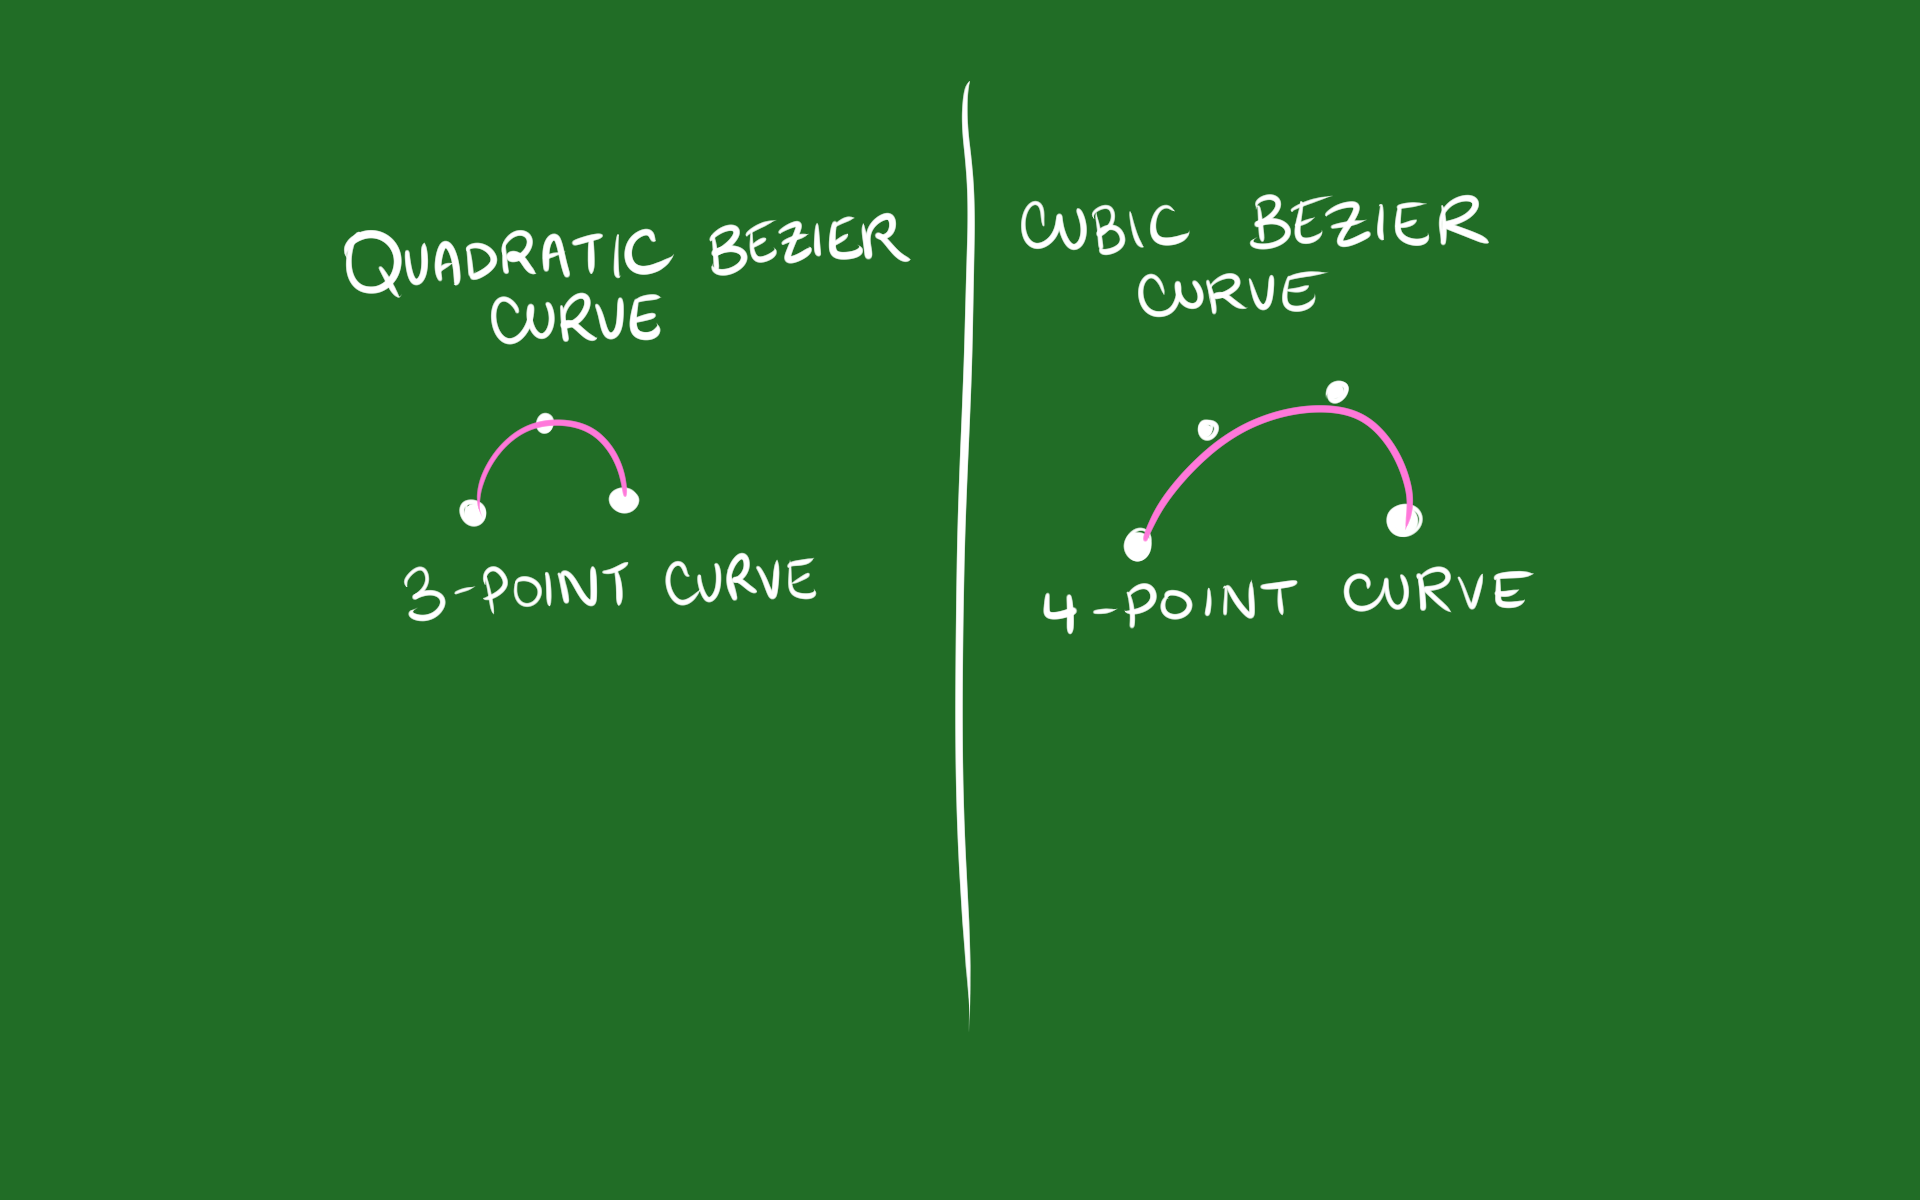 QUADRATIC BEZIER
CURVE
3-POINT CURVE
CUBIC BEZIER
CURVE
4-POINT CURVE